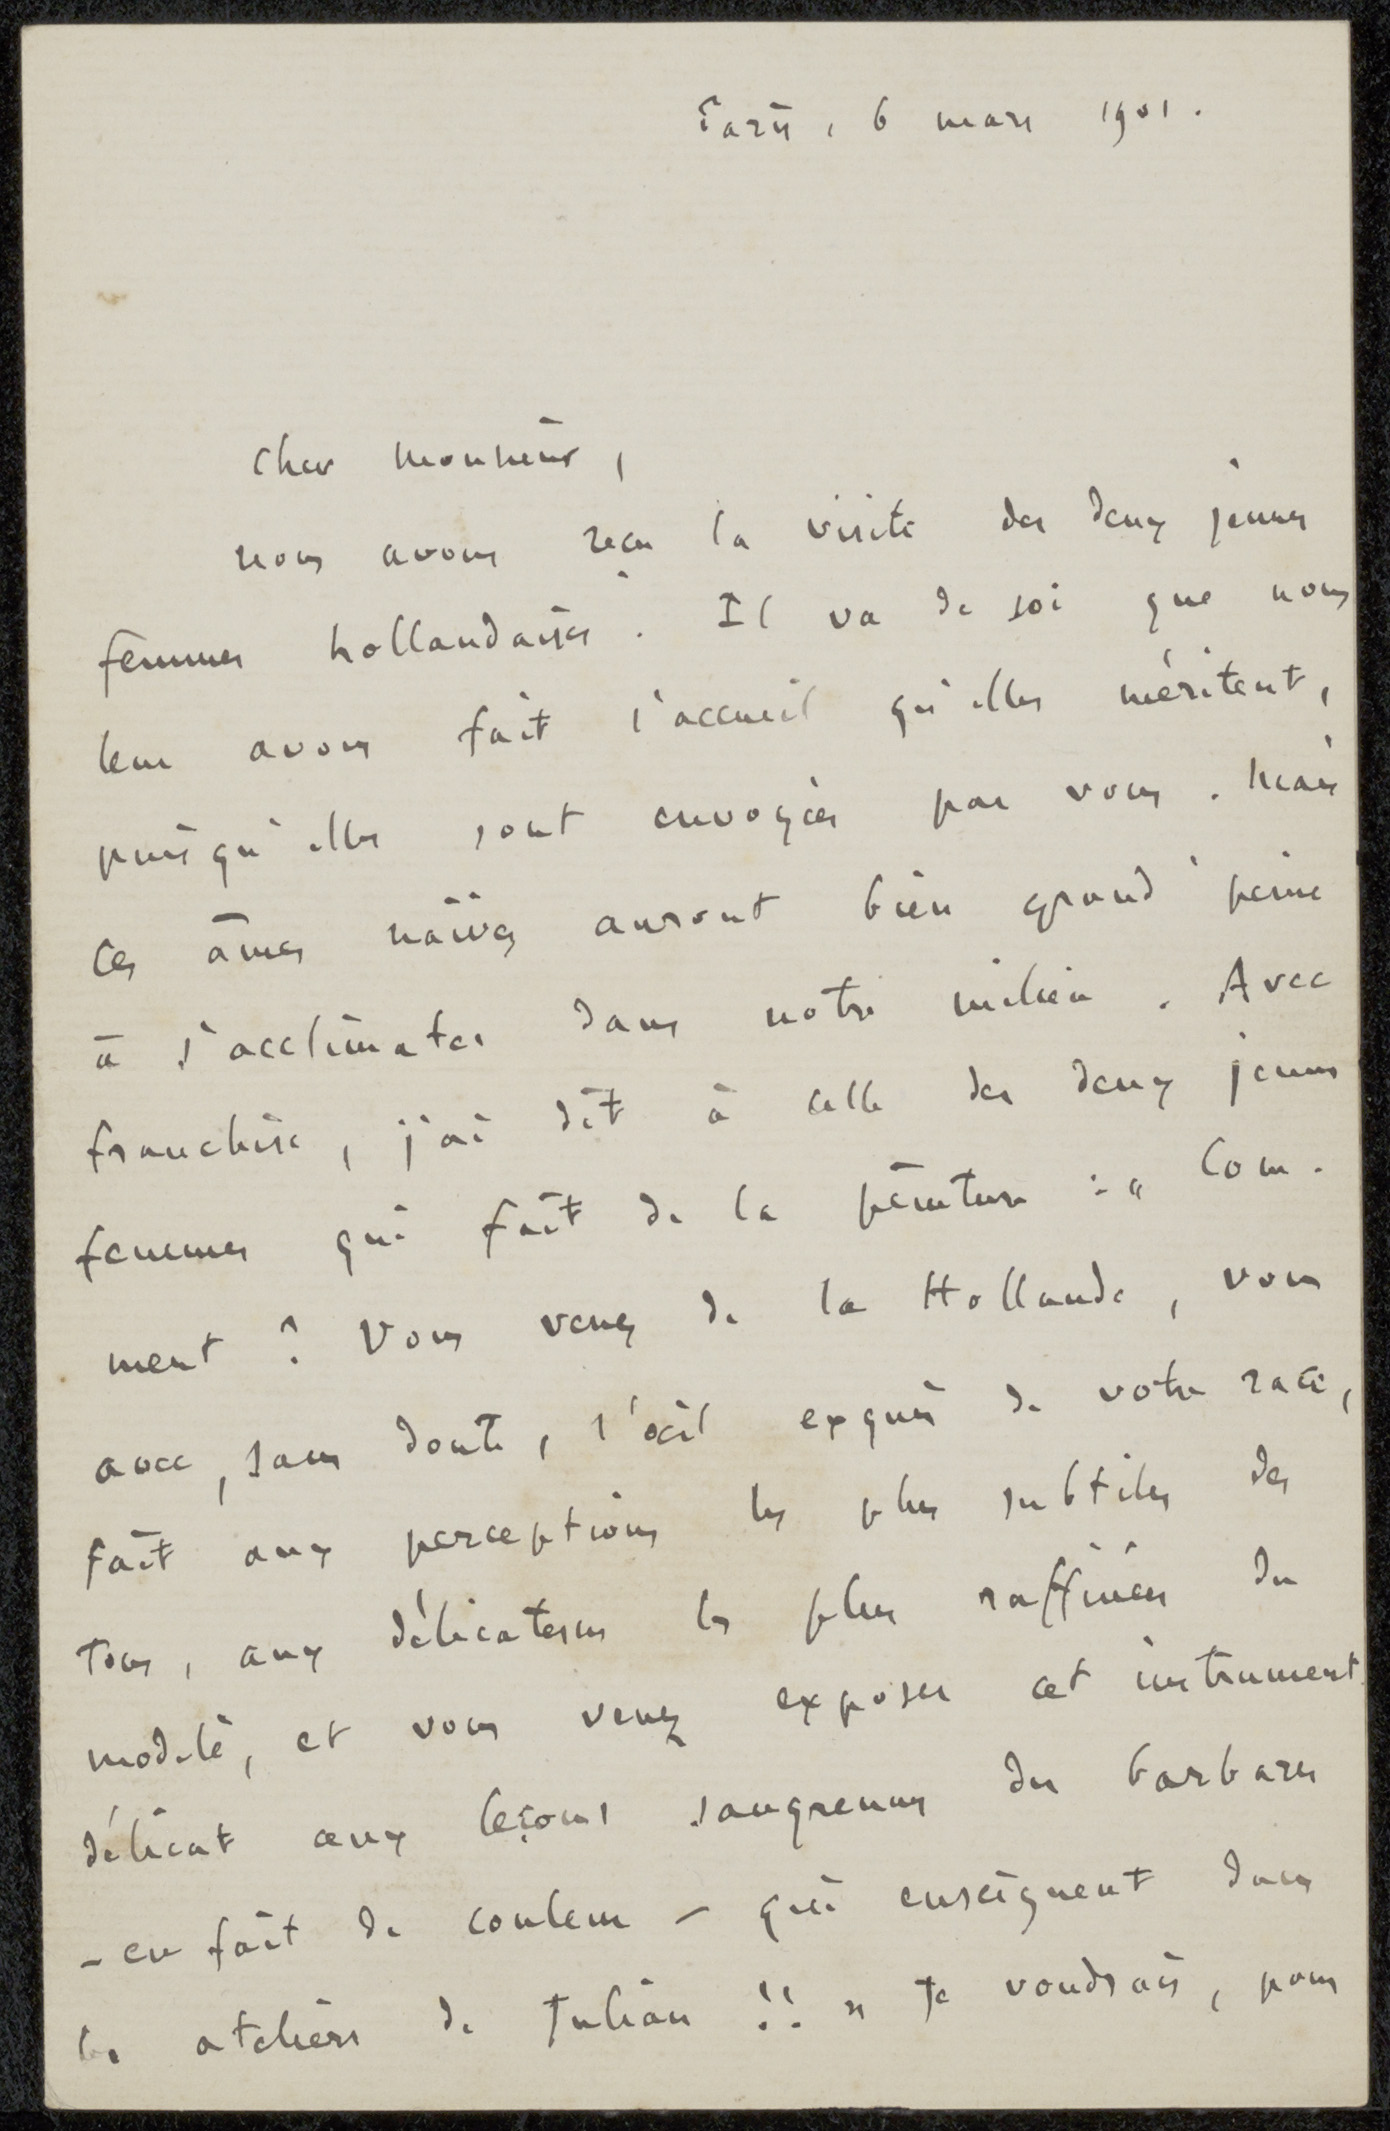 Paris, 6 mars 1901.
Cher Monsieur,
nous avons reçu la visite des deux jeunes
femmes hollandaises. Il va de soi que nous
leur avons fait l'accueil qu'elles méritent,
puisqu'elles sont envoyées par vous. Mais
ces âmes naïves auront bien grand'peine
à s'acclimater dans notre milieu. Avec
franchise, j'ai dit à celle des deux jeunes
femmes qui fait de la peinture : « Com-
ment ? Vous venez de la Hollande, vous
avec, sans doute, l'œil exquis de votre race,
fait aux perceptions les plus subtiles des
tons, aux délicatesses les plus raffinées du
modelé, et vous venez exposer cet instrument
délicat aux leçons saugrenues des barbares
- en fait de couleur - qui enseignent dans
les ateliers de Julian !! » Je voudrais, pour